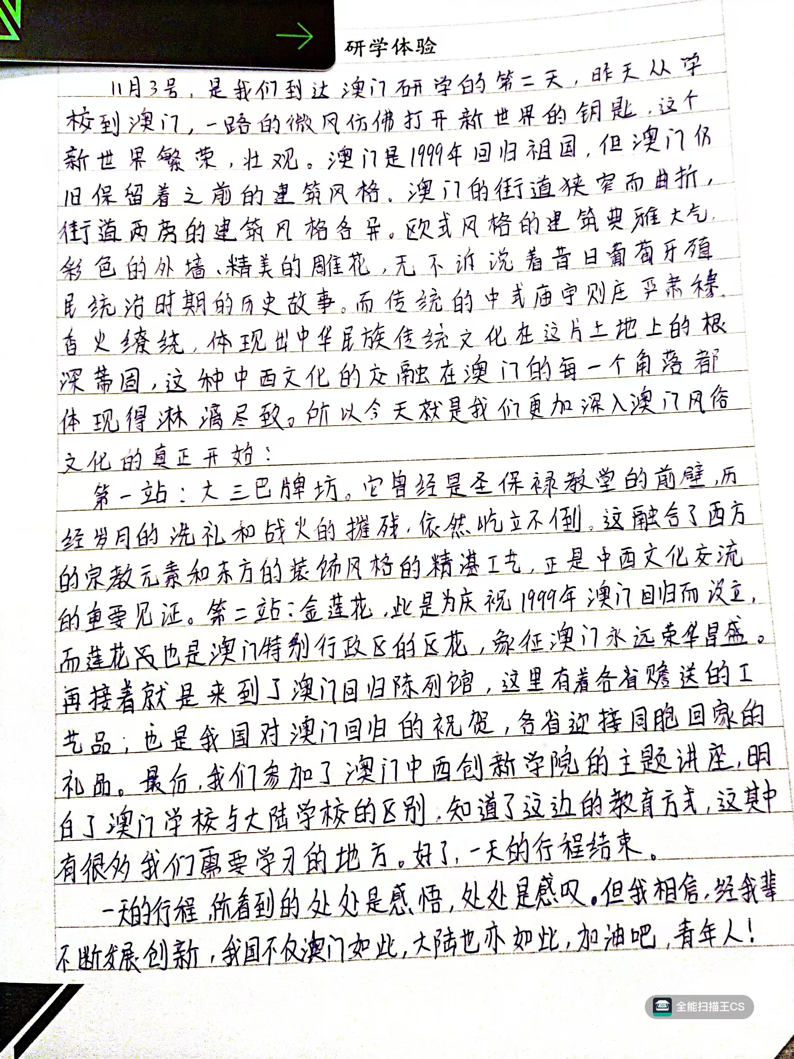 研学体验
11月3号，是我们到达澳门研学的第二天，昨天从学
校到澳门，一路的微风仿佛打开新世界的钥匙，这个
新世界繁荣，壮观。澳门是1999年回归祖国，但澳门仍
旧保留着之前的建筑风格。澳门的街道狭窄而曲折，
街道两旁的建筑风格各异。欧式风格的建筑典雅大气，
彩色的外墙、精美的雕花，无不诉说着昔日葡萄牙殖
民统治时期的历史故事。而传统的中式庙宇则庄严肃穆，
香火缭绕，体现出中华民族传统文化在这片土地上的根
深蒂固，这种中西文化的交融在澳门的每一个角落都
体现得淋漓尽致。所以今天就是我们更加深入澳门风俗
文化的真正开始：
第一站：大三巴牌坊。它曾经是圣保禄教堂的前壁，历
经岁月的洗礼和战火的摧残，依然屹立不倒。这融合了西方
的宗教元素和东方的装饰风格的精湛工艺，正是中西文化交流
的重要见证。第二站：金莲花，此是为庆祝1999年澳门回归而设立，
而莲花也是澳门特别行政区的区花，象征澳门永远荣华昌盛。
再接着就是来到了澳门回归陈列馆，这里有着各省赠送的工
艺品；也是我国对澳门回归的祝贺，各省迎接同胞回家的
礼品。最后，我们参加了澳门中西创新学院的主题讲座，明
白了澳门学校与大陆学校的区别，知道了这边的教育方式，这其中
有很多我们需要学习的地方。好了，一天的行程结束。
一天的行程，所看到的处处是感悟，处处是感叹。但我相信，经我辈
不断发展创新，我国不仅澳门如此，大陆也亦如此，加油吧，青年人！
全能扫描王CS